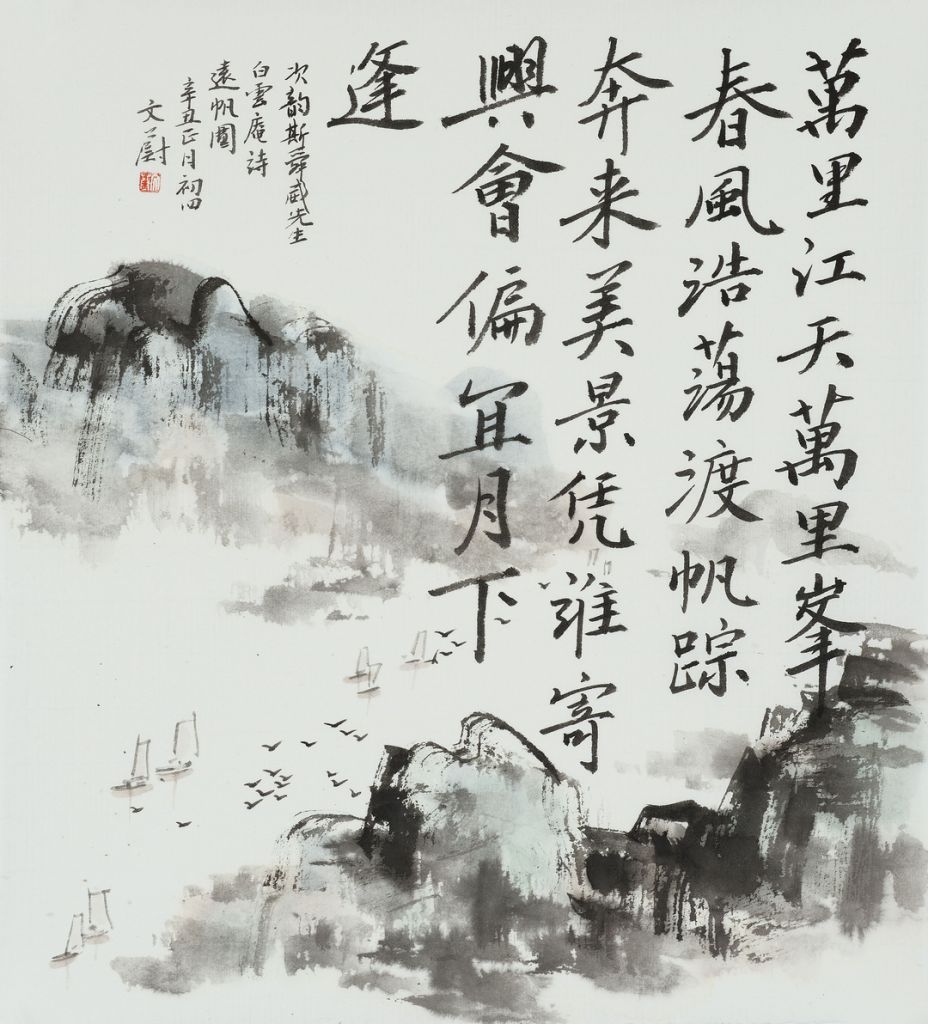 萬里江天萬里峯
春風浩蕩渡帆踪
奔来美景凭誰寄
興會偏宜月下
逢
次韵斯舜威先生
白雲庵詩
遠帆圖
辛丑正月初四
文蔚